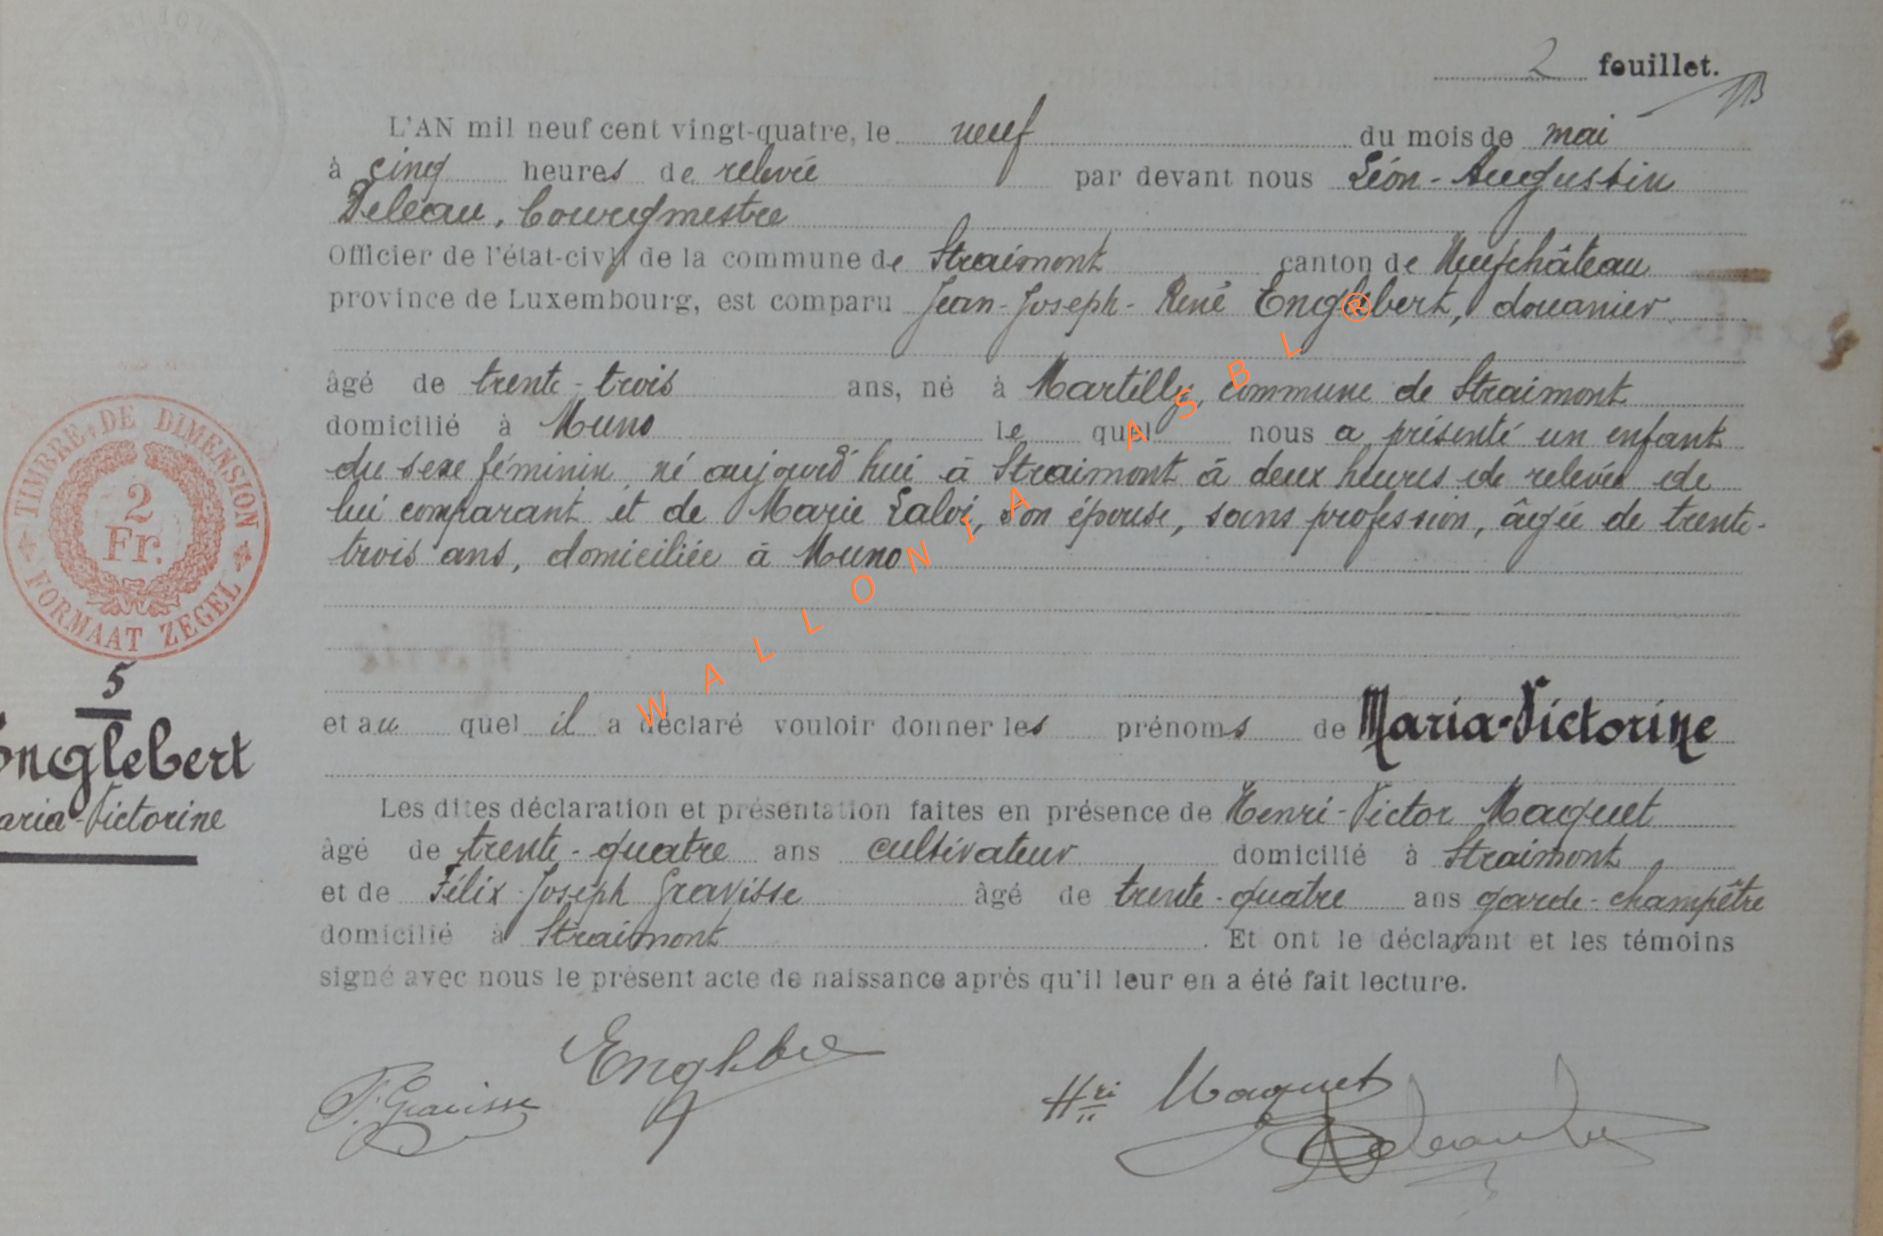 2 fouillet.
L'AN mil neuf cent vingt-quatre, le neuf du mois de mai
à cinq heures de relevée par devant nous Léon-Augustin
Deleau, bourgmestre
Officier de l'état-civil de la commune de Straimont canton de Neufchâteau
province de Luxembourg, est comparu Jean-Joseph-René Englebert, douanier
âgé de trente-trois ans, né à Martilly, commune de Straimont
domicilié à Muno le quel nous a présenté un enfant
du sexe féminin né aujourd'hui à Straimont à deux heures de relevée de
lui comparant et de Marie Laloi, son épouse, sans profession, âgée de trente-
trois ans, domiciliée à Muno
et au quel il a déclaré vouloir donner les prénoms de Maria-Victorine
Les dites déclaration et présentation faites en présence de Henri-Victor Maquet
âgé de trente-quatre ans cultivateur domicilié à Straimont
et de Félix-Joseph Gravisse âgé de trente-quatre ans garde-champêtre
domicilié à Straimont. Et ont le déclarant et les témoins
signé avec nous le présent acte de naissance après qu'il leur en a été fait lecture.
TIMBRE DE DIMENSION
2
Fr.
FORMAAT ZEGEL
5
Englebert
Maria-Victorine
F. Gravisse
Hri Maquet
WALLONIA ASBL ®